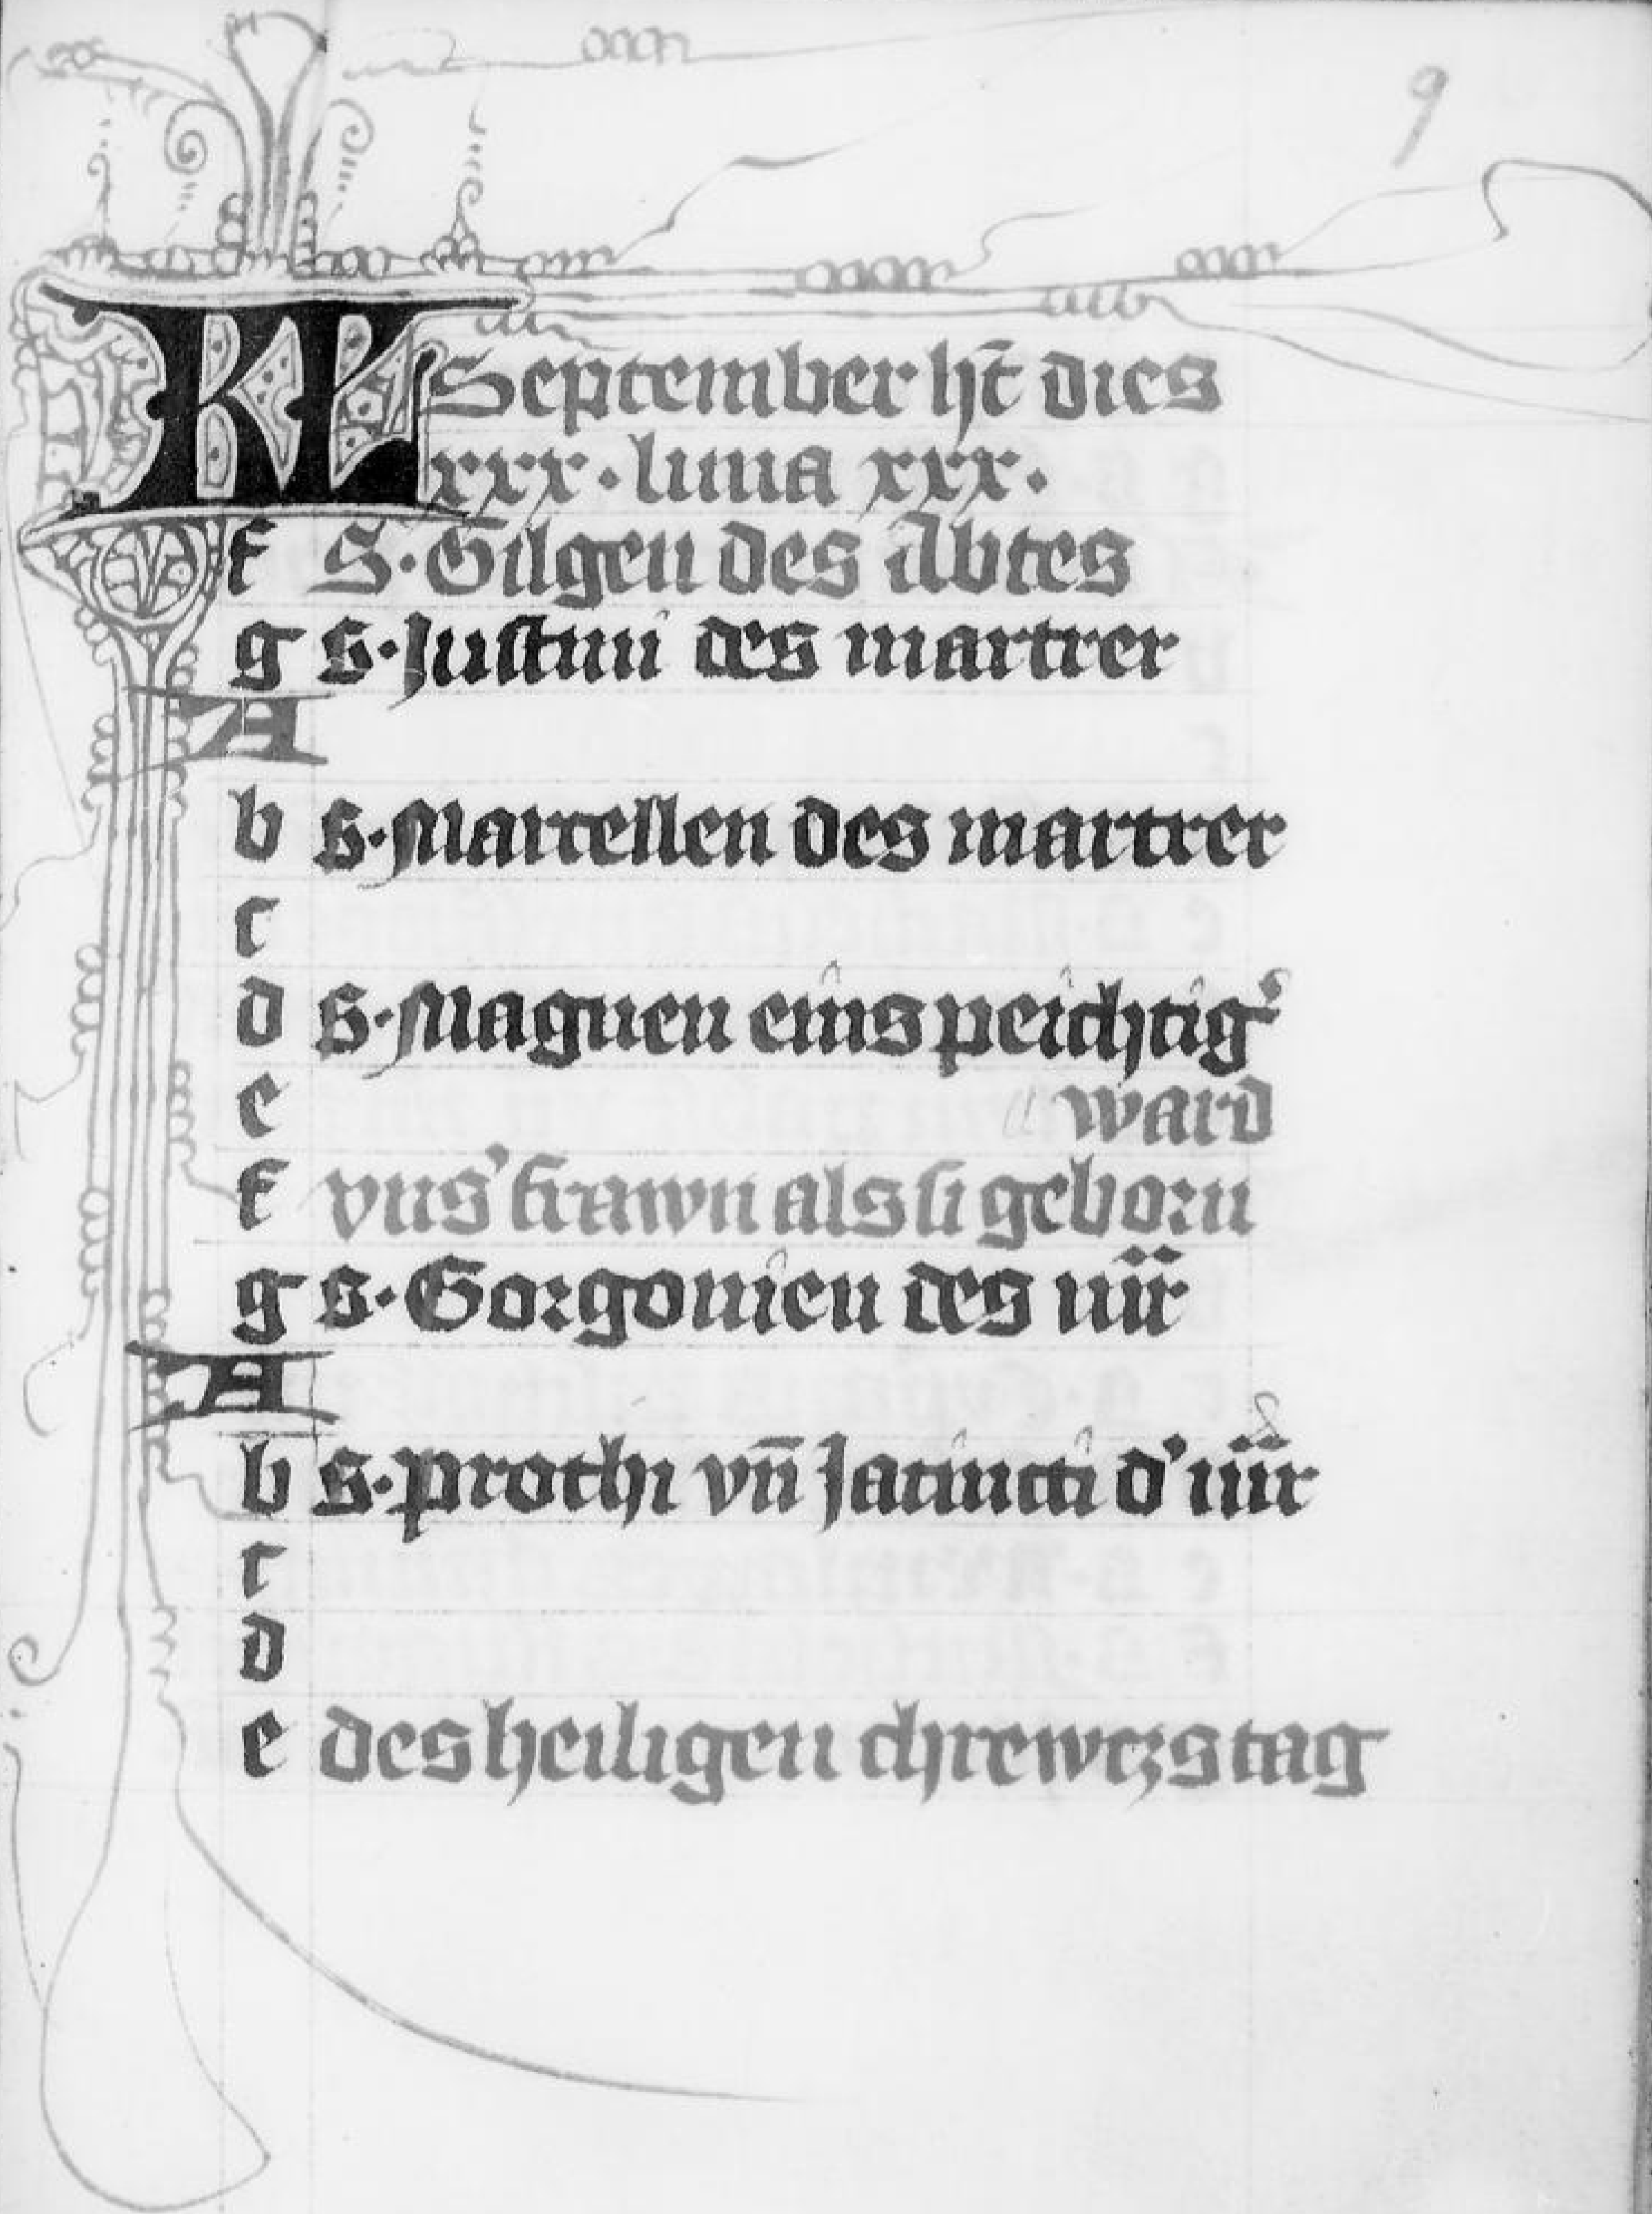 9
KL September ht̄ dies
xxx · luna xxx ·
f S · Gilgen des Abtes
g s · Justini des martrer
A
b s · Marcellen des martrer
c
d s · Magnen eins peichtig᾽
e ward
f vns᾽ frawn als si geborn
g s · Gorgonien des mr̈
A
b s · prothi vn̄ Jacincti d᾽ mr̈
c
d
e des heiligen chrewczs tag